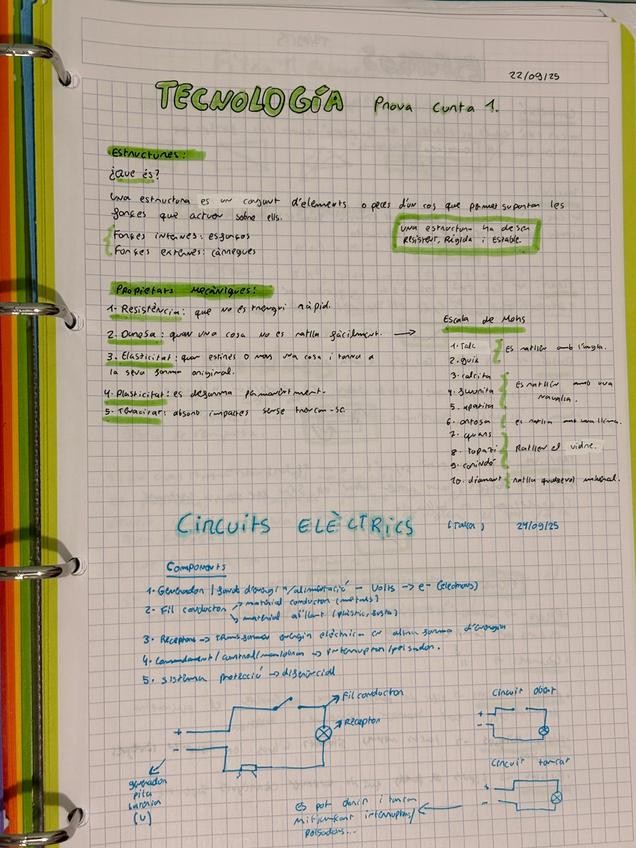 22/09/25
TECNOLOGÍA Prova Curta 1.
Estructures:
¿Que és?
Una estructura es un conjunt d'elements o peces d'un cos que permet suportar les
forçes que actuen sobre ells.
Forçes internes: esforços
Forçes externes: càrregues
una estructura ha de ser
Resistent, Rígida i Estable.
Propietats Mecàniques:
1. Resistència: que no es trenqui ràpid.
2. Duresa: quan una cosa no es ratlla fàcilment. →
3. Elasticitat: quan estires o mous una cosa i torna a
la seva forma original.
4. Plasticitat: es deforma permanentment.
5. Tenacitat: absorb impactes sense trencar-se.
Escala de Mohs
1. Talc
2. guix
Es ratllen amb l'ungla.
3. calcita
4. fluorita
5. apatita
Es ratllen amb una
navalla.
6. ortosa
es ratlla amb una llima.
7. quars
8. topazi
9. corindó
Ratllen el vidre.
10. diamant
ratlla qualsevol material.
CIRCUITS ELÈCTRICS (Tema) 24/09/25
Components
1. Generador / fonts d'energia/alimentació – Volts → e- (electrons)
2. Fil conductor → material conductor (metals)
↘ material aïllant (plàstic, fusta)
3. Receptors → transformar energia elèctrica en altra forma d'energia
4. Comandament/control/maniobra → interruptor/polsador.
5. sistema protecció → diferencial
Fil conductor
Receptor
+
-
generador
pila
bateria
(V)
Circuit obert
+
-
Circuit tancat
-
Es pot obrir i tancar
mitjançant interruptors/
polsadors...